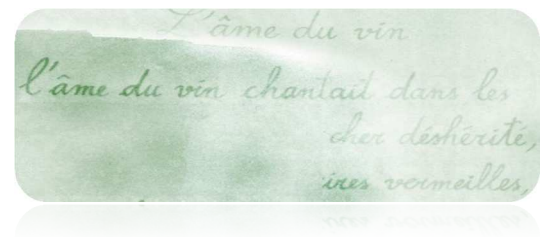 L'âme du vin
l'âme du vin chantait dans les
cher déshérité,
ires vermeilles,